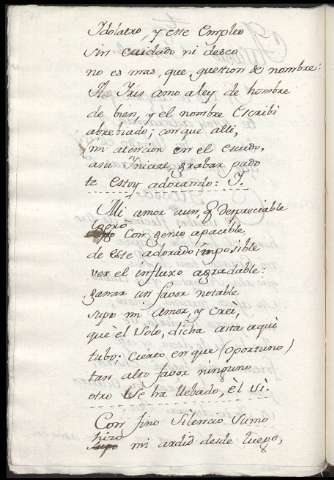 Idolatro, y este Empleo
sin cuidado ni deseo
no es mas, que question de nombre:
A Iris amo a ley de hombre
de bien, y el nombre Escribi
abrebiado; con que alli,
mi atencion en el escudo,
asu Inicial grabar pudo
te estoy adorando: I.
Mi amor aun, q despreciable
logró con genio apacible,
de este adorado imposible
ver el influxo agradable:
ganar un favor notable
supo mi Amor, y creè,
què el solo, dicha aqui
tubo; cierto en que (oportuno)
tan alto favor ninguno
otro se ha llebado, èl si.
Con fino Silencio Sumo
hizo mi ardid desde luego,